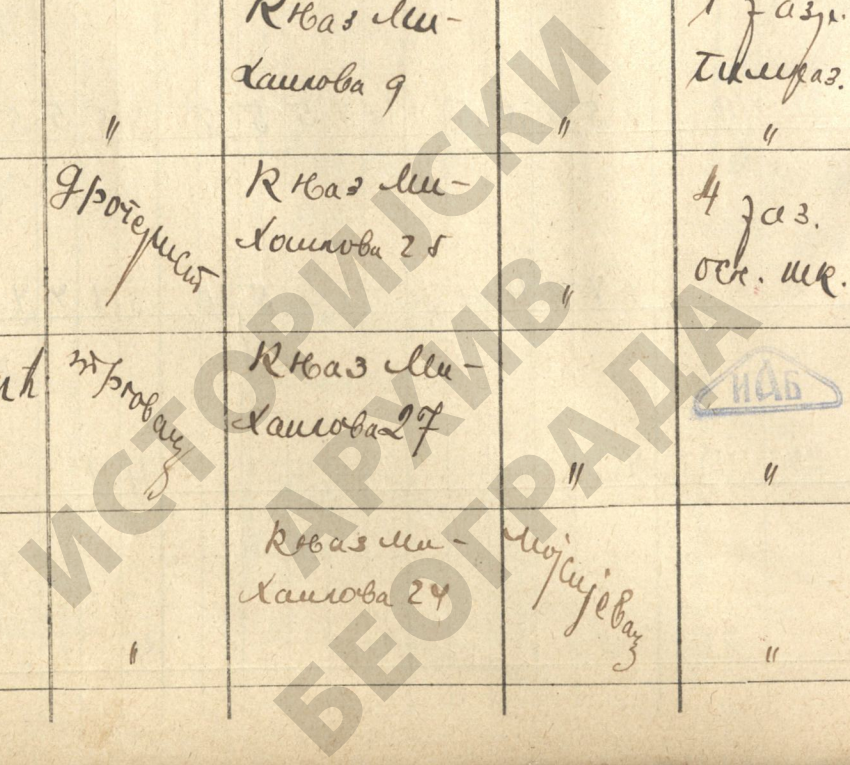 Књаз Ми-
хаилова 9
1 раз.
гимназ.
"
"
"
дрогерист
Књаз Ми-
хаилова 25
"
4 раз.
осн. шк.
трговац
Књаз Ми-
хаилова 27
"
"
ИАБ
"
Књаз Ми-
хаилова 24
Мојсијевац
"
ИСТОРИЈСКИ
АРХИВ
БЕОГРАДА